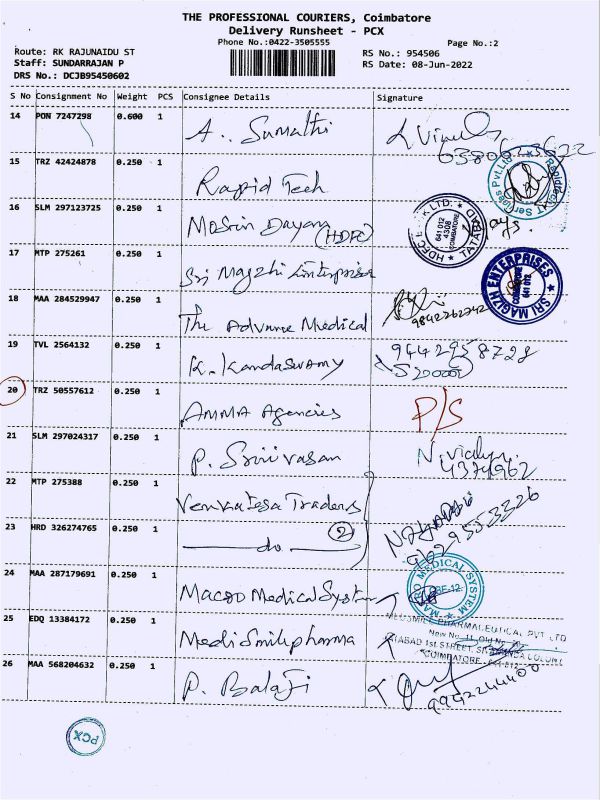 THE PROFESSIONAL COURIERS, Coimbatore
Delivery Runsheet - PCX
Phone No.:0422-3505555
Page No.:2
Route: RK RAJUNAIDU ST
RS No.: 954506
Staff: SUNDARRAJAN P
RS Date: 08-Jun-2022
DRS No.: DCJB95450602
S No Consignment No Weight PCS Consignee Details Signature
14 PON 7247298 0.600 1 A. Sumathi
15 TRZ 42424878 0.250 1 Rapid Tech
16 SLM 297123725 0.250 1 (HDFC)
HDFC BANK LTD. TATABAD 641 012 4308 COIMBATORE
17 MTP 275261 0.250 1 Sri Magizhi Enterprises
SRI MAGIZH ENTERPRISES COIMBATORE 641 012
18 MAA 284529947 0.250 1 The Advance Medical
19 TVL 2564132 0.250 1 K. Kandaswamy
20 TRZ 50557612 0.250 1 AMMA Agencies P/S
21 SLM 297024317 0.250 1 P. Srinivasan
22 MTP 275388 0.250 1 Venkatesa Traders
23 HRD 326274765 0.250 1 do 2
24 MAA 287179691 0.250 1 Macro Medical System
25 EDQ 13384172 0.250 1 Medi Smile pharma
26 MAA 568204632 0.250 1 P. Balaji
9942244400
PCX